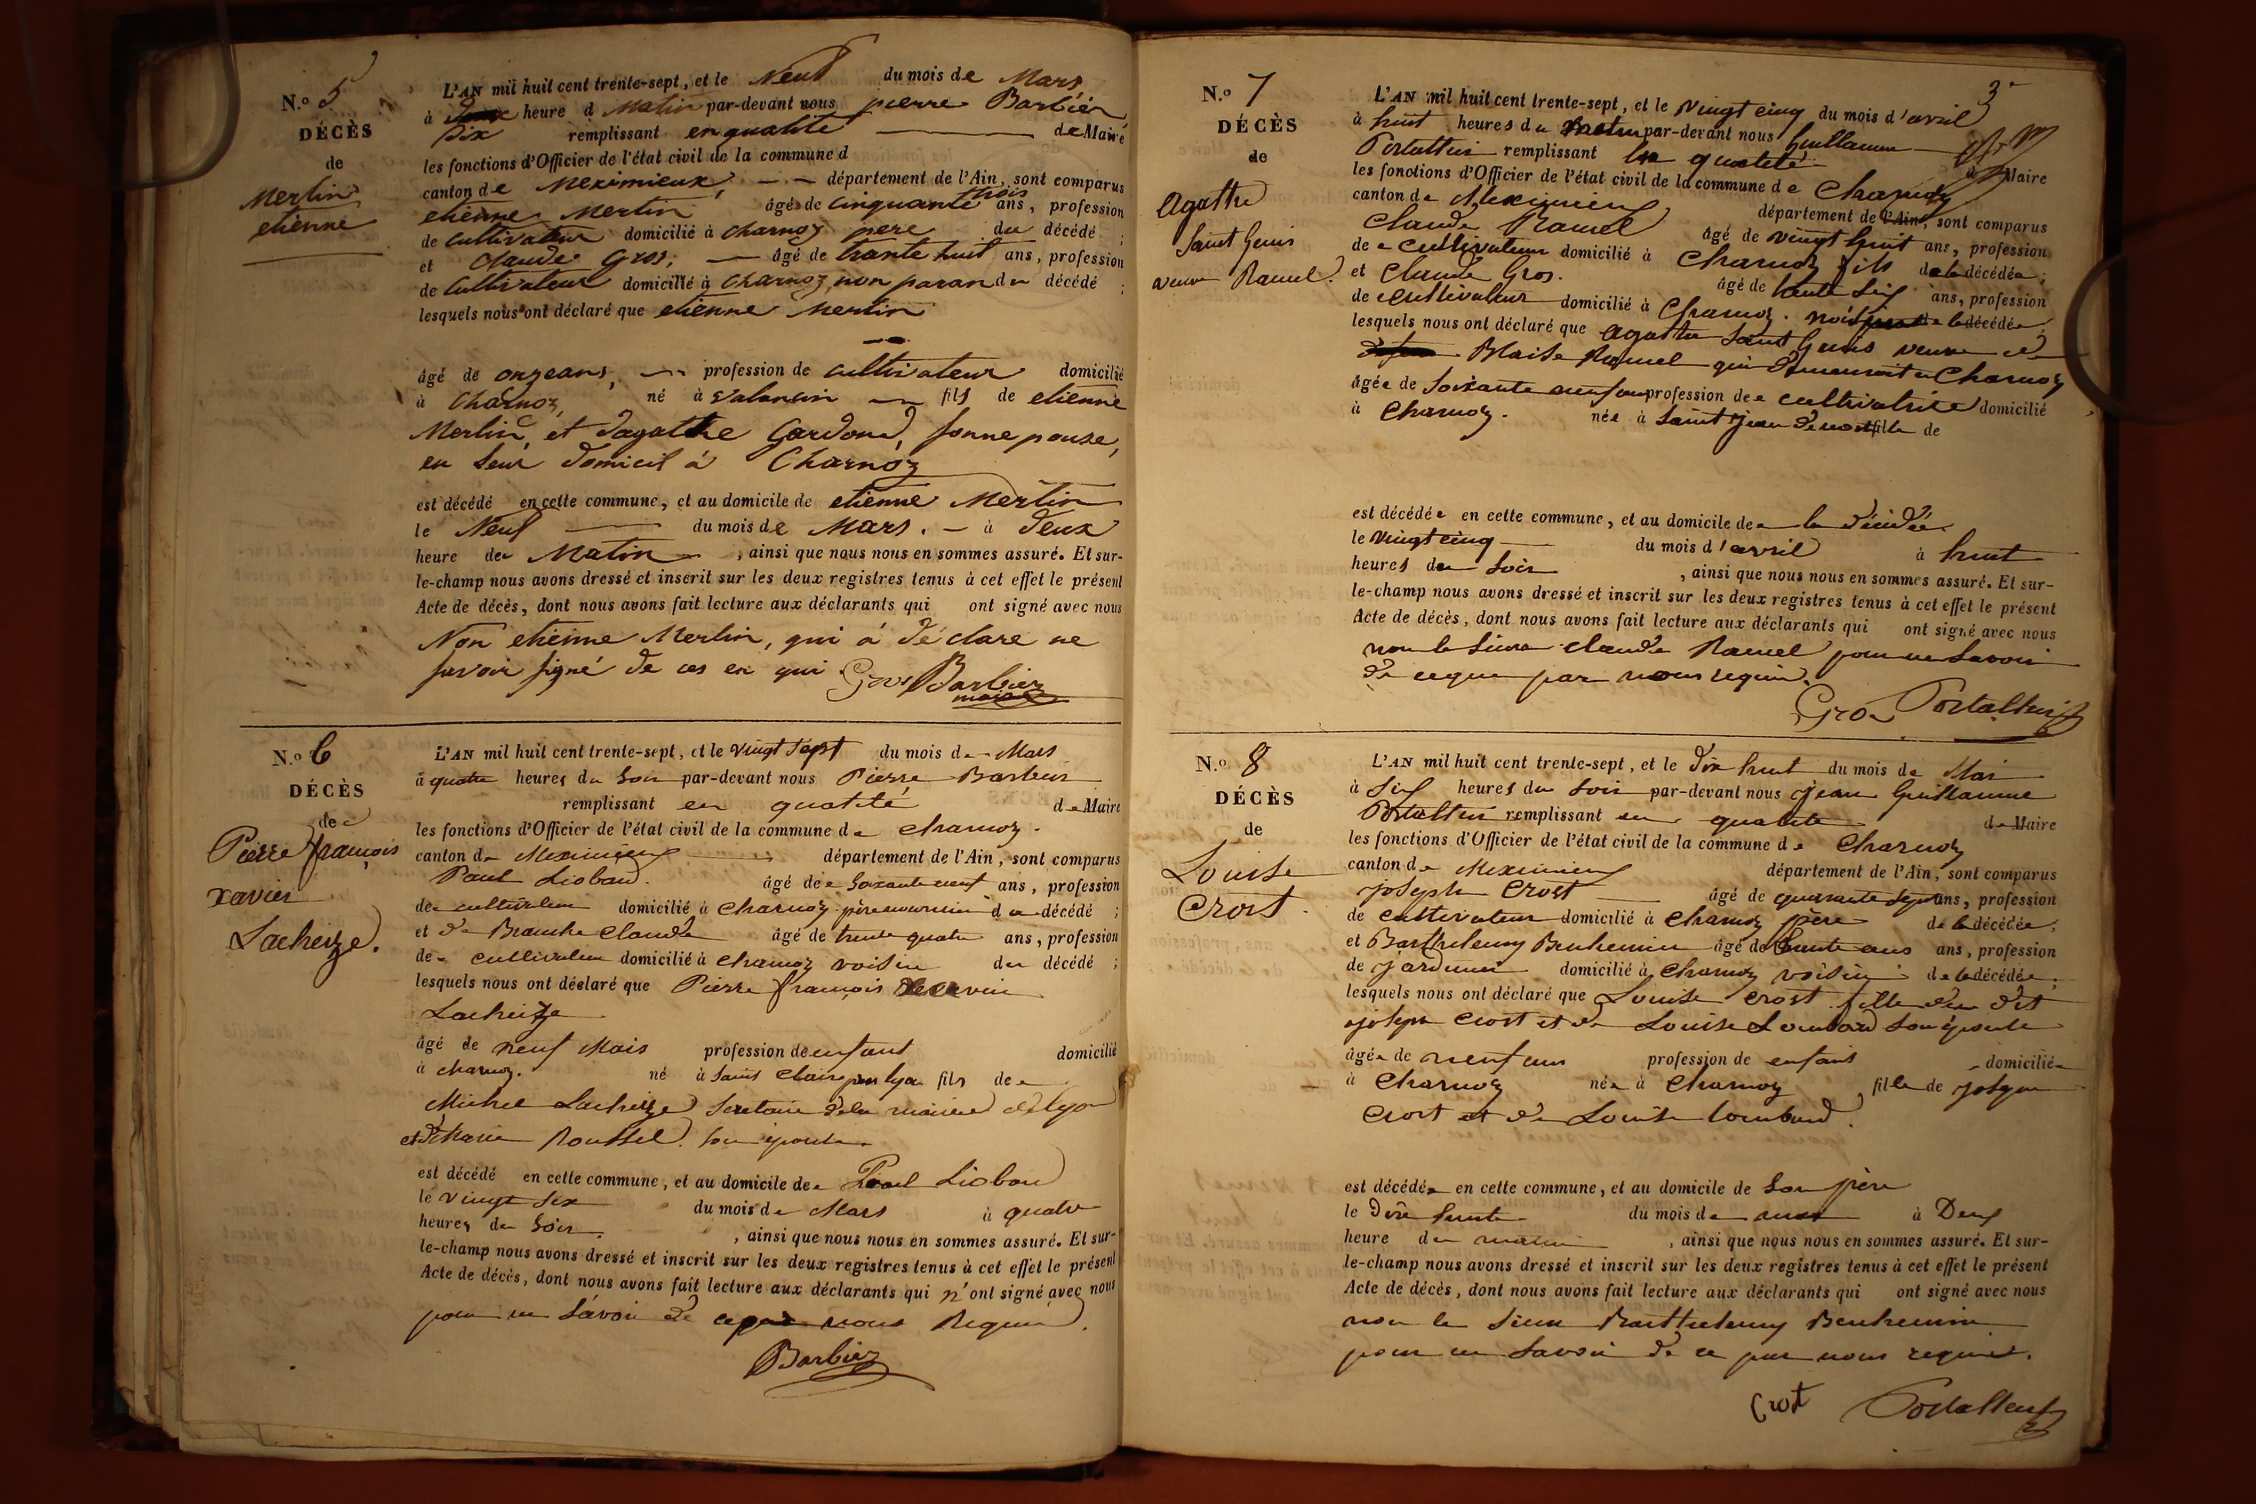 N.o 5
DÉCÈS
de
Merlin
etienne
L'AN mil huit cent trente-sept, et le Neuf du mois de Mars
à deux heure d Matin par-devant nous pierre Barbier
dix remplissant en qualité de Maire
les fonctions d'Officier de l'état civil de la commune d
canton de Meximieux, département de l'Ain, sont comparus
etienne Merlin âgé de cinquante trois ans, profession
de Cultivateur domicilié à charnoz pere du décédé ;
et Claude Gros, âgé de trante huit ans, profession
de Cultivateur domicilié à charnoz non paran du décédé ;
lesquels nous ont déclaré que etienne Merlin
âgé de onzeans, profession de cultivateur domicilié
à Charnoz, né à valancin fils de etienne
Merlin, et dagathe Gardond, sonnepouse,
en leur domicil á Charnoz
est décédé en cette commune, et au domicile de etienne Merlin
le Neuf du mois de Mars. à deux
heure du Matin, ainsi que nous nous en sommes assuré. Et sur-
le-champ nous avons dressé et inscrit sur les deux registres tenus à cet effet le présent
Acte de décès, dont nous avons fait lecture aux déclarants qui ont signé avec nous
Non etienne Merlin, qui á déclare ne
savoir signé de ces en qui Gros Barbier
maire
N.o 6
DÉCÈS
de
Pierre françois
xavier
Lacheize.
L'AN mil huit cent trente-sept, et le vingt sept du mois de Mars
à quatre heures du Soir par-devant nous Pierre Barbier
remplissant en qualité de Maire
les fonctions d'Officier de l'état civil de la commune de charnoz.
canton de Meximieux département de l'Ain, sont comparus
Paul Liobard. âgé de soixante neuf ans, profession
de cultivateur domicilié à Charnoz père nourricier du décédé ;
et de Branche Claude âgé de trente quatre ans, profession
de cultivateur domicilié à charnoz voisin du décédé ;
lesquels nous ont déclaré que Pierre françois xavier
Lacheize
âgé de neuf Mois profession de enfant domicilié
à charnoz. né à Saint Clair par lyon fils de
Michel Lacheize Secretaire dela mairie de lyon
et de Marie Roussel. son épouse
est décédé en cette commune, et au domicile de Paul Liobard
le vingt six du mois de Mars à quatre
heures du Soir, ainsi que nous nous en sommes assuré. Et sur-
le-champ nous avons dressé et inscrit sur les deux registres tenus à cet effet le présent
Acte de décès, dont nous avons fait lecture aux déclarants qui n'ont signé avec nous
pour ne Savoir de ce par nous Requis.
Barbier
3
N.o 7
DÉCÈS
de
Agathe
Saint Genis
veuve Ramel.
L'AN mil huit cent trente-sept, et le vingt cinq du mois d'avril
à huit heures du matin par-devant nous Guillaume
Portallier remplissant en qualité de Maire
les fonctions d'Officier de l'état civil de la commune de Charnoz
canton de Meximieux département de l'Ain, sont comparus
Claude Ramel âgé de vingt huit ans, profession
de cultivateur domicilié à Charnoz fils de la décédée ;
et Claude Gros. âgé de trente six ans, profession
de cultivateur domicilié à Charnoz. voisin de la décédée ;
lesquels nous ont déclaré que agathe Saint Genis veuve de
Blaise Ramel qui demeurait à Charnoz
âgée de Soixante neuf ans profession de cultivatrice domicilié
à Charnoz. née à Saint jean de niost fille de
est décédée en cette commune, et au domicile de la décédée
le vingt cinq du mois d'avril à huit
heures du Soir, ainsi que nous nous en sommes assuré. Et sur-
le-champ nous avons dressé et inscrit sur les deux registres tenus à cet effet le présent
Acte de décès, dont nous avons fait lecture aux déclarants qui ont signé avec nous
non le Sieur Claude Ramel pour ne Savoir
de ce que par nous requis.
Gros Portallier
N.o 8
DÉCÈS
de
Louise
Crost.
L'AN mil huit cent trente-sept, et le dix huit du mois de Mai
à Six heures du Soir par-devant nous jean Guillaume
Portallier remplissant en qualité de Maire
les fonctions d'Officier de l'état civil de la commune de Charnoz
canton de Meximieux département de l'Ain, sont comparus
joseph Crost âgé de quarante sept ans, profession
de cultivateur domicilié à Charnoz père de la décédée ;
et Barthelemy Benhemin âgé de trente ans ans, profession
de jardinier domicilié à Charnoz voisin de la décédée ;
lesquels nous ont déclaré que Louise Crost fille du dit
joseph Crost et de Louise Lombard Son épouse
âgée de neuf ans profession de enfant domiciliée
à Charnoz née à Charnoz fille de joseph
Crost et de Louise Lombard.
est décédée en cette commune, et au domicile de Son père
le dix huit du mois de mai à Deux
heure du matin, ainsi que nous nous en sommes assuré. Et sur-
le-champ nous avons dressé et inscrit sur les deux registres tenus à cet effet le présent
Acte de décès, dont nous avons fait lecture aux déclarants qui ont signé avec nous
non le Sieur Barthelemy Benhemin
pour ne Savoir de ce par nous requis.
Crost Portallier